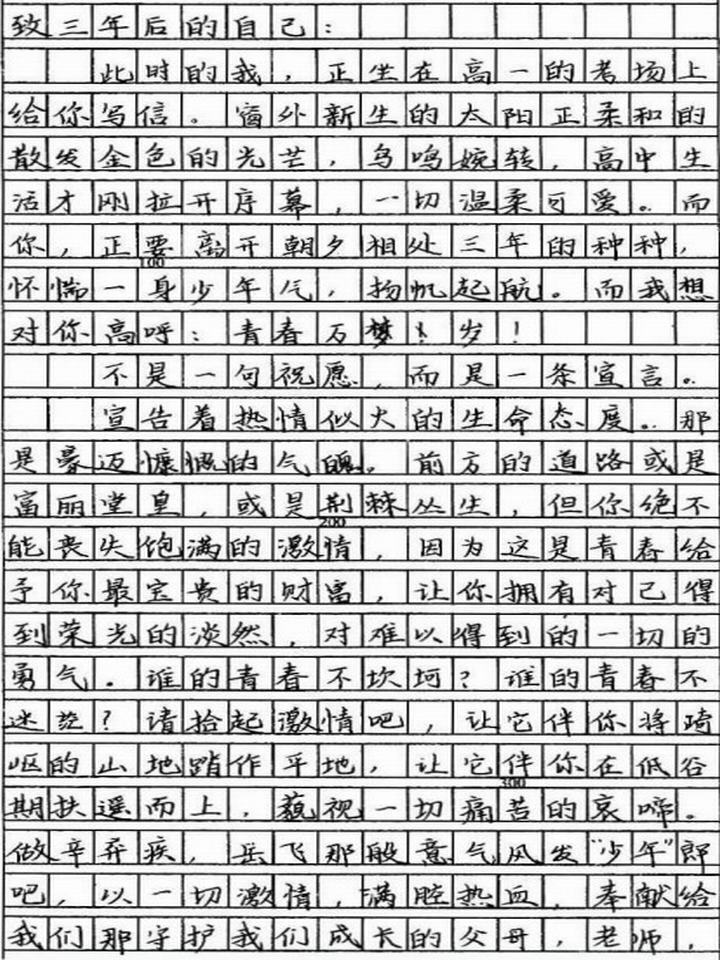 致三年后的自己：
此时的我，正坐在高一的考场上
给你写信。窗外新生的太阳正柔和的
散发金色的光芒，鸟鸣婉转，高中生
活才刚拉开序幕，一切温柔可爱。而
你，正要离开朝夕相处三年的种种，
100
怀惴一身少年气，扬帆起航。而我想
对你高呼：青春万岁！
不是一句祝愿，而是一条宣言。
宣告着热情似火的生命态度。那
是豪迈慷慨的气魄。前方的道路或是
富丽堂皇，或是荆棘丛生，但你绝不
200
能丧失饱满的激情，因为这是青春给
予你最宝贵的财富，让你拥有对己得
到荣光的淡然，对难以得到的一切的
勇气。谁的青春不坎坷？谁的青春不
迷茫？请拾起激情吧，让它伴你将崎
岖的山地踏作平地，让它伴你在低谷
300
期扶遥而上，藐视一切痛苦的哀啼。
做辛弃疾，岳飞那般意气风发"少年"郎
吧，以一切激情，满腔热血，奉献给
我们那守护我们成长的父母，老师，